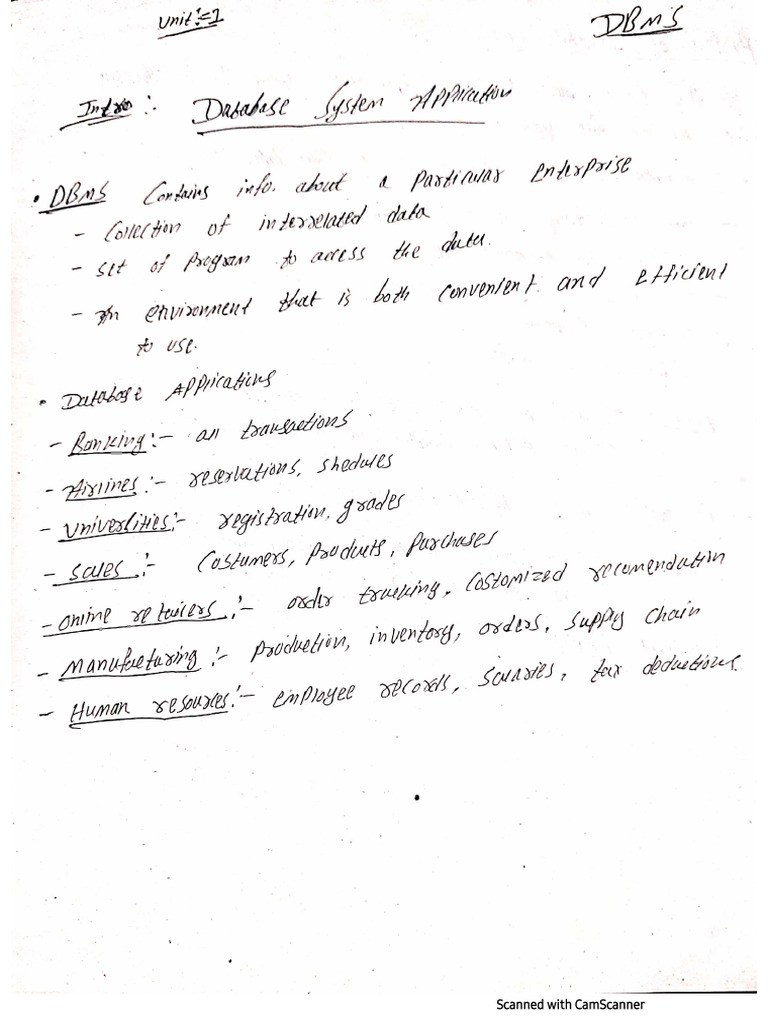 Unit:-1
DBMS
Intro:- Database System Application
• DBMS Contains info. about a particular enterprise
- Collection of interrelated data
- set of program to access the data.
- An environment that is both convenient and efficient
to use.
• Database Applications
- Banking:- all transactions
- Airlines:- reservations, shedules
- Univerlities:- registration, grades
- Sales:- Costumers, Products, Purchases
- Online retailers:- order tracking, Costomized recomendation
- Manufacturing:- production, inventory, orders, supply chain
- Human resources:- employee records, salaries, tax deductions.
Scanned with CamScanner